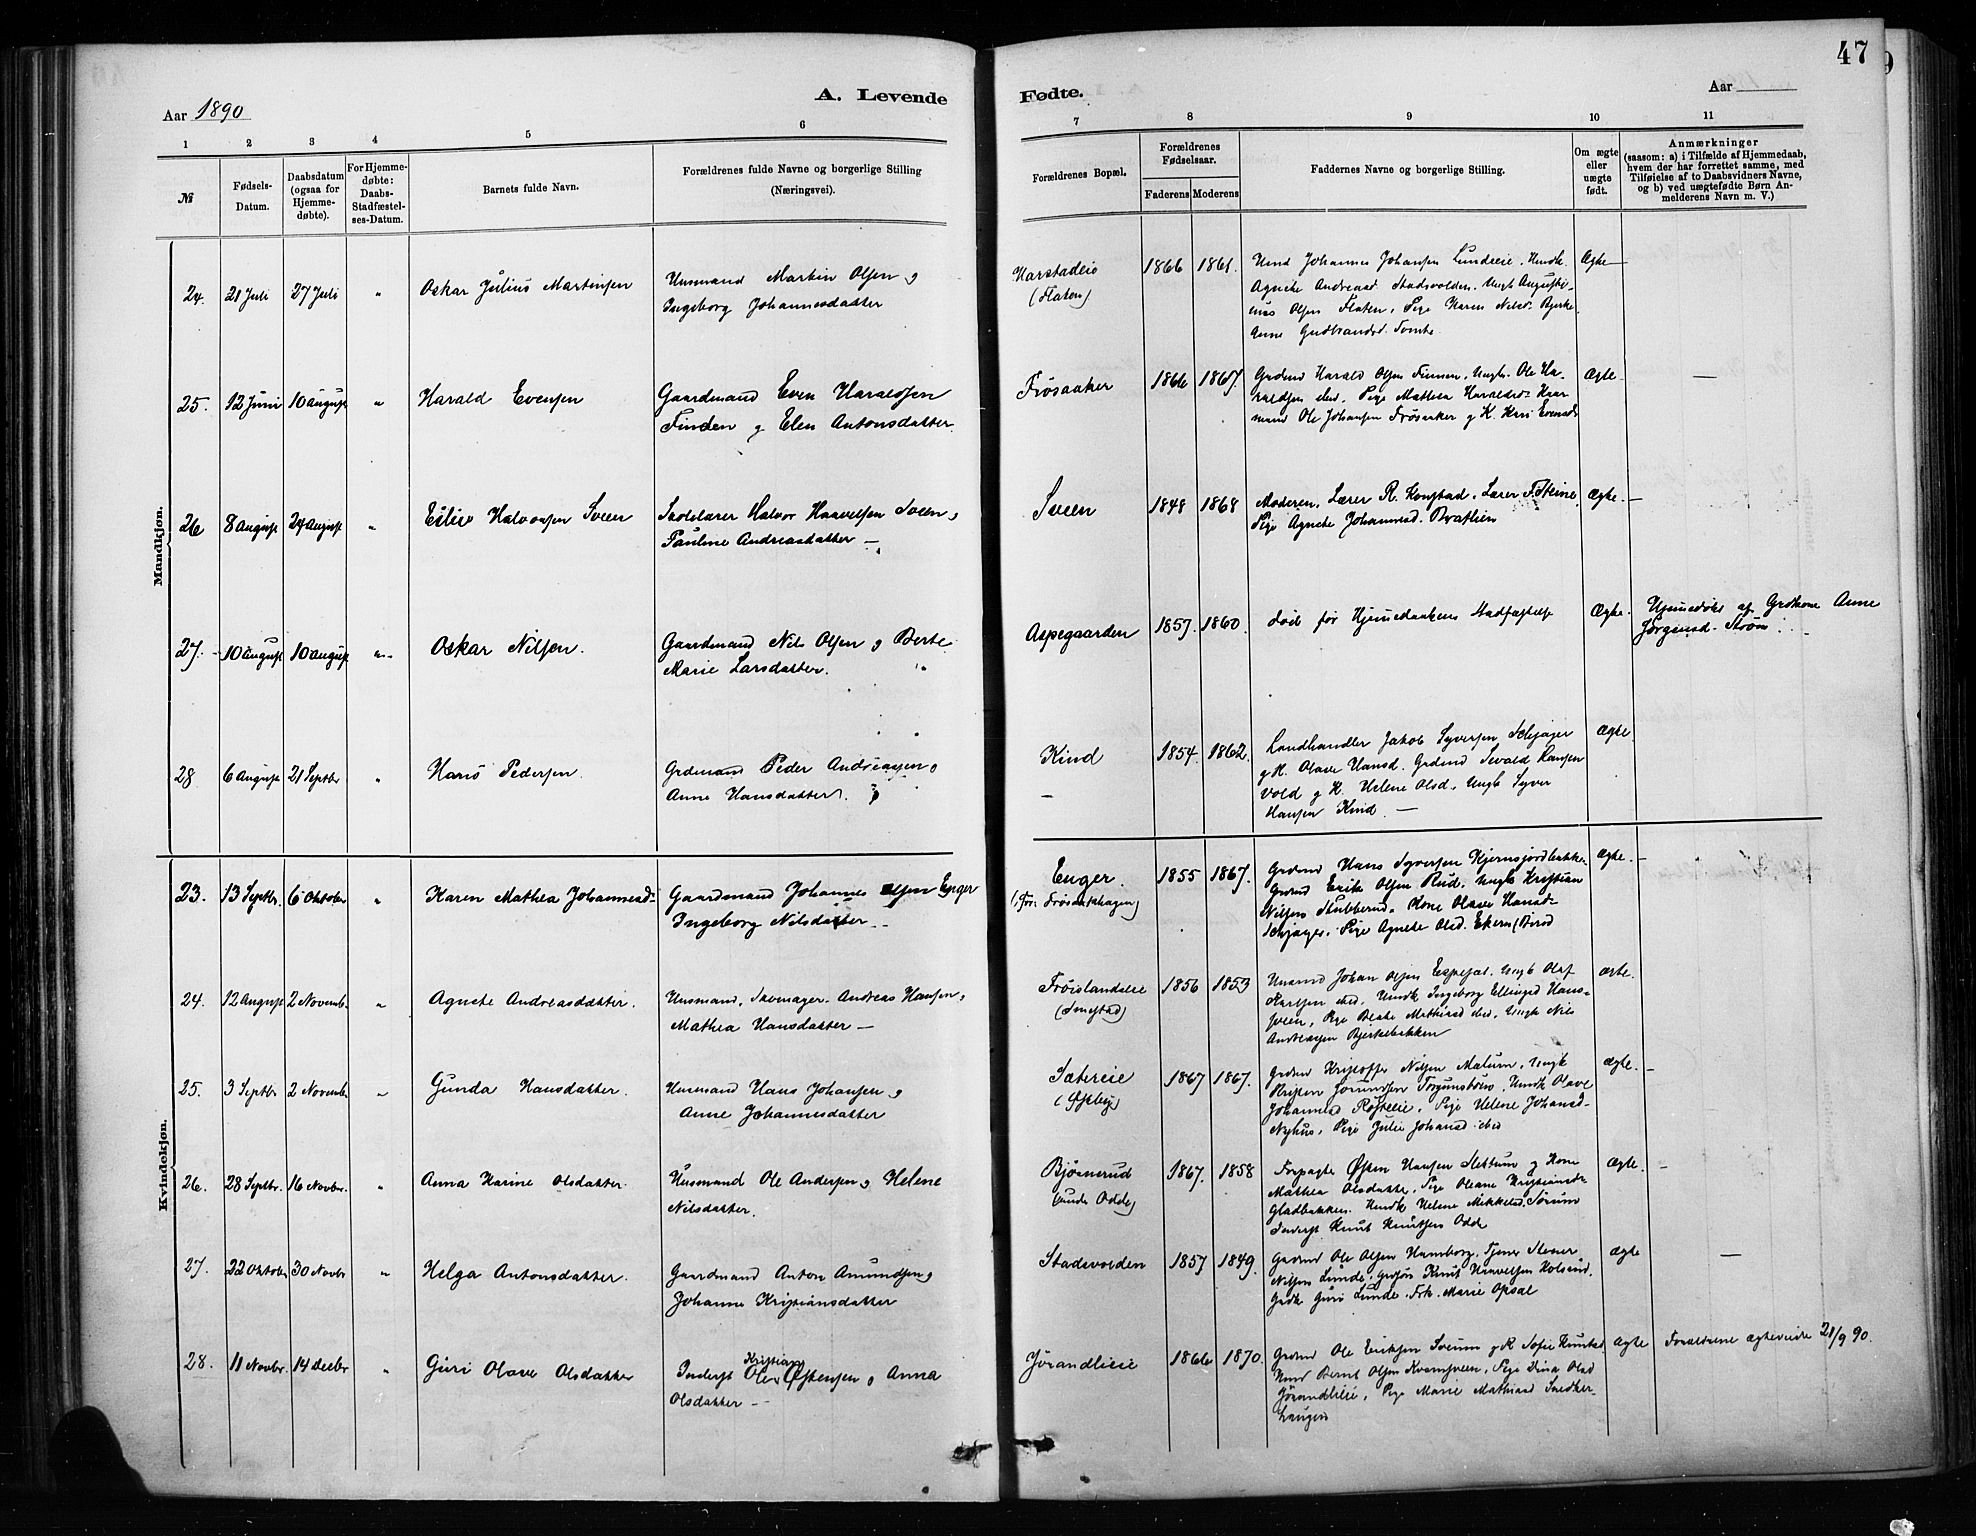 47
Aar 1890
A. Levende
Fødte.
Aar
1 2 3 4 5 6 7 8 9 10 11
№
Fødsels-
Datum.
Daabsdatum
(ogsaa for
Hjemme-
døbte).
For Hjemme-
døbte:
Daabs-
Stadfæstel-
ses-Datum.
Barnets fulde Navn.
Forældrenes fulde Navne og borgerlige Stilling
(Næringsvei).
Forældrenes Bopæl.
Forældrenes
Fødselsaar.
Faderens Moderens
Faddernes Navne og borgerlige Stilling.
Om ægte
eller
uægte
født.
Anmærkninger
(saasom: a) i Tilfælde af Hjemmedaab,
hvem der har forrettet samme, med
Tilføielse af to Daabsvidners Navne,
og b) ved uægtefødte Børn An-
melderens Navn m. V.)
Mandkjøn.
24. 21 Juli 27 Juli " Oskar Julius Martinsen
Husmand Martin Olsen og
Ingeborg Johannesdatter
Harstadeie
(Flaten)
1866 1861.
Umd Johannes Johansen Lundeie.
Agnete Andreasd Stadsvolden. Ungk Augusti-
nus Olsen Flaten, Pige Karen Nilsd. Bjerke
Anne Gudbrandsd. Tomte
Ægte
25. 12 Juni 10 August " Harald Evensen
Gaardmand Even Haraldsen
Finden og Elen Antonsdatter
Frösaaker
1866 1867.
Grdmd Harald Olsen Finden, Ungk. Ole Ha-
raldsen ibid. Pige Mathea Haraldsd.
mand Ole Johansen Frösaker og K. Kari Evensd
Ægte —
26 8 August 24 August " Eiliv Halvorsen Sveen
Skolelærer Halvor Haavelsen Sveen og
Pauline Andreasdatter —
Sveen
1848 1868
Moderen, Lærer R. Kongstad. Lærer F. Steine
Pige Agnete Johannesd. Bratlien
Ægte. —
27. 10 August 10 August " Oskar Nilsen.
Gaardmand Nils Olsen og Berte
Marie Larsdatter.
Aspegaarden
1857. 1860.
död før Hjemmedaabens Stadfæstelse
Ægte.
Hjemmedøbt af Grdkone Anne
Jörgensd. Ström
28 6 August 21 Septbr " Hans Pedersen
Grdmand Peder Andreassen og
Anne Hansdatter.
Kind
—
1854. 1862.
Landhandler Jakob Syversen Schjager
og K. Olave Hansd. Grdmd Sevald Hansen
Vold og K. Helene Olsd. Ungk Syver
Hansen Kind. —
Ægte
Kvindekjøn.
23. 13 Septbr. 6 Oktober " Karen Mathea Johannesd-
Gaardmand Johannes Olsen Enger
Ingeborg Nilsdatter —
Enger.
(før: Frösakshagen)
1855 1867.
Grdmd Hans Syversen Kjernsjordbakke
Grdmd Erik Olsen Rud, Ungk Kristian
Nilsen Stubberud. Kone Olave Hansd-
Schjager. Pige Agnete Olsd. Ekern
ægte. —
24. 12 August 2 Novemb. " Agnete Andreasdatter.
Husmand, Skomager. Andreas Hansen og
Mathea Hansdatter —
Fröislandeie
(Smestad)
1856 1853
Husmd Johan Olsen Espesæt. Ungk Olaf
Karlsen ibid. Hmdk Ingeborg Ellingsd Hans-
sveen, Pige Beate Mathiasd ibid, Ungk Nils
Andreassen Bjerkebakken
ægte.
25. 3 Septbr 2 Novemb. " Gunda Hansdatter.
Husmand Hans Johansen og
Anne Johannesdatter
Sætereie
1867 1867.
Grdmd Kristoffer Nilsen Matum, Ungk
Kristen
Johannesd Røsteeie, Pige Helene Johansd-
Nyhus, Pige Julie Johansd. ibid
Ægte. —
26. 28 Septbr. 16 Novbr. " Anna Karine Olsdatter.
Husmand Ole Andersen og Helene
Nilsdatter.
Bjørnerud
(under Odde)
1867. 1858
Forpagter Østen Hansen Slettum og Kone
Mathea Olsdatter. Pige Oleane Kristiansd-
Gladbakken. Hmdk Helene Mikkelsd. Sørum
Inderst Knut Knutsen Odde
Ægte. —
27. 22 Oktober 30 Novbr " Helga Antonsdatter.
Gaardmand Anton Amundsen og
Johanne Kristiansdatter
Stadsvolden
1857 1849.
Grdmd Ole Olsen Hamborg. Tjener Stener
Nilsen Lunde, Knut Haavelsen Kolsrud.
Guri Lunde. Frk. Marie Opsal
Ægte —
28. 11 Novbr. 14 Decbr " Guri Olave Olsdatter
Inderst Ole Kristian Østensen og Anna
Olsdatter —
Jörandlieie
1866 1870.
Grdmd Ole Eriksen Sveum og K Sofie Knutsd
Hmd Bernt Olsen Kvamsveen, Pige Dina Olsd
Jörandlieie, Pige Marie Mathiasd Snedker-
haugen
Ægte
Forældrene ægteviede 21/9 90.